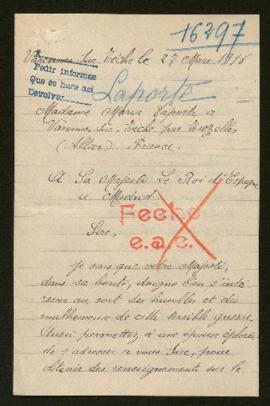 16297
Varennes sur Tèche le 27 Mars 1916
Pedir informes
Que se hace así
Devolver
Laporte
Madame Marie Laporte à
Varennes sur Tèche par Trezelles
(Allier) France.
A Sa Majesté Le Roi d'Espagne
à Madrid
Fecho
e.a.c.
Sire,
Je sais que votre Majesté,
dans sa bonté, daigne bien s'inté
resser au sort des humbles et des
malheureux de cette terrible guerre
Aussi permettez, à une épouse éplorée
de s'adresser à vous Sire, pour
obtenir des renseignements sur le